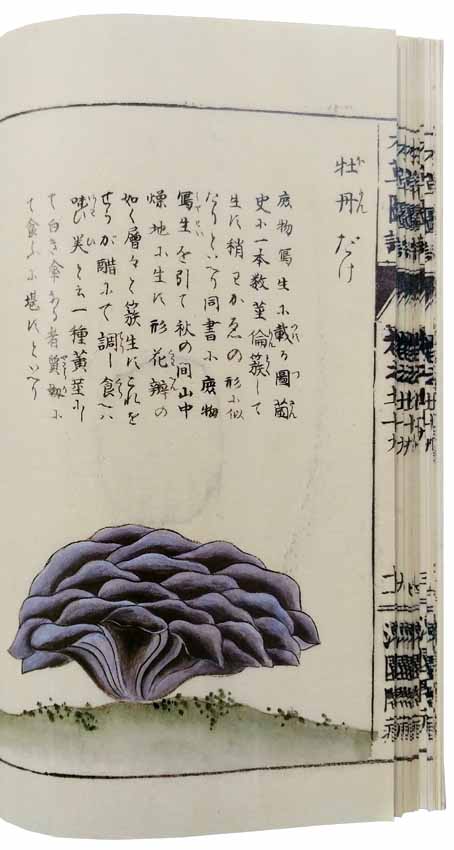 牡丹だけ
庶物寫生に載る圖菌
史に一本数莖倫簇して
生す稍わかゑの形に似
なりといへり同書に庶物
寫生を引て秋の間山中
燥地に生す形花瓣の
如く層々と簇生すこれを
せうが醋にて調し食へハ
味ひ美と云一種黄莖にし
て白き傘ある者質靱に
て食ふに堪すといへり